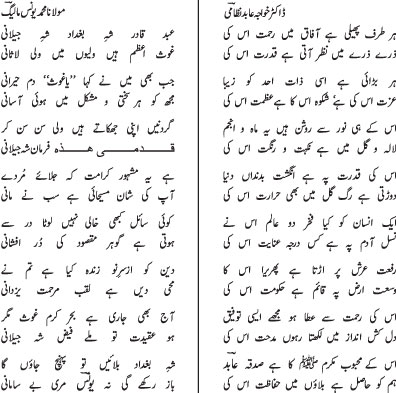 ڈاکٹر خواجہ عابد نظامی
ہر طرف پھیلی ہے آفاق میں رحمت اس کی
ذرے ذرے میں نظر آتی ہے قدرت اس کی
ہر بڑائی ہے اسی ذات احد کو زیبا
عزت اس کی ہے شکوہ اس کا ہے عظمت اس کی
اس کے ہی نور سے روشن ہیں یہ ماہ و انجم
لالہ و گل میں ہے نکہت و رنگت اس کی
اس کی قدرت پہ ہے انگشت بدنداں دنیا
دوڑتی ہے رگ گل میں بھی حرارت اس کی
ایک انسان کو کیا فخر دو عالم اس نے
نسل آدم پہ ہے کس درجہ عنایت اس کی
رفعت عرش پر اڑتا ہے پھریرا اس کا
وسعت ارض پہ قائم ہے حکومت اس کی
اس کی رحمت سے عطا ہو مجھے ایسی توفیق
دل کش انداز میں لکھتا رہوں مدحت اس کی
اس کے محبوب مکرم ﷺ کا ہے صدقہ عابد
ہم کو حاصل ہے بلاؤں میں حفاظت اس کی
مولانا محمد یونس مالیگ
عبد قادر شہ بغداد شہ جیلانی
غوث اعظم ہیں ولیوں میں ولی لاثانی
جب بھی میں نے کہا ”یاغوث“ دم حیرانی
مجھ کو ہر سختی و مشکل میں ہوئی آسانی
گردنیں اپنی جھکاتے ہیں ولی سن سن کر
قدمی ھذہ فرمان شہ جیلانی
ہے یہ مشہور کرامت کہ جلائے مُردے
آپ کی شان مسیحائی ہے سب نے مانی
کوئی سائل کبھی خالی نہیں لوٹا در سے
ہوتی ہے گوہر مقصود کی دُر افشانی
دین کو ازسرنو زندہ کیا ہے تم نے
محی دیں ہے لقب مرحمت یزدانی
آج بھی جاری ہے بحر کرم غوث مگر
ہو عقیدت تو ملے فیض شہ جیلانی
شہ بغداد بلائیں تو پہنچ جاؤں گا
باز رکھے گی نہ یونس مری بے سامانی